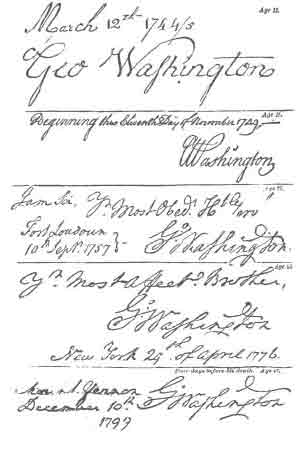 Age 13.
March 12th 1744/5
Geo Washington
Age 17.
Beginning this Eleventh Day of November 1749.
GWashington
I am Sir, Yr Most Obedt Hble Serv
Fort Loudoun
10th Septr. 1757
Go: Washington.
Yr Most Affecte Brother,
Go Washington
New York 29th of April 1776.
Four days before his death. Age 67.
Mount Vernon
December 10th
Go Washington
1799